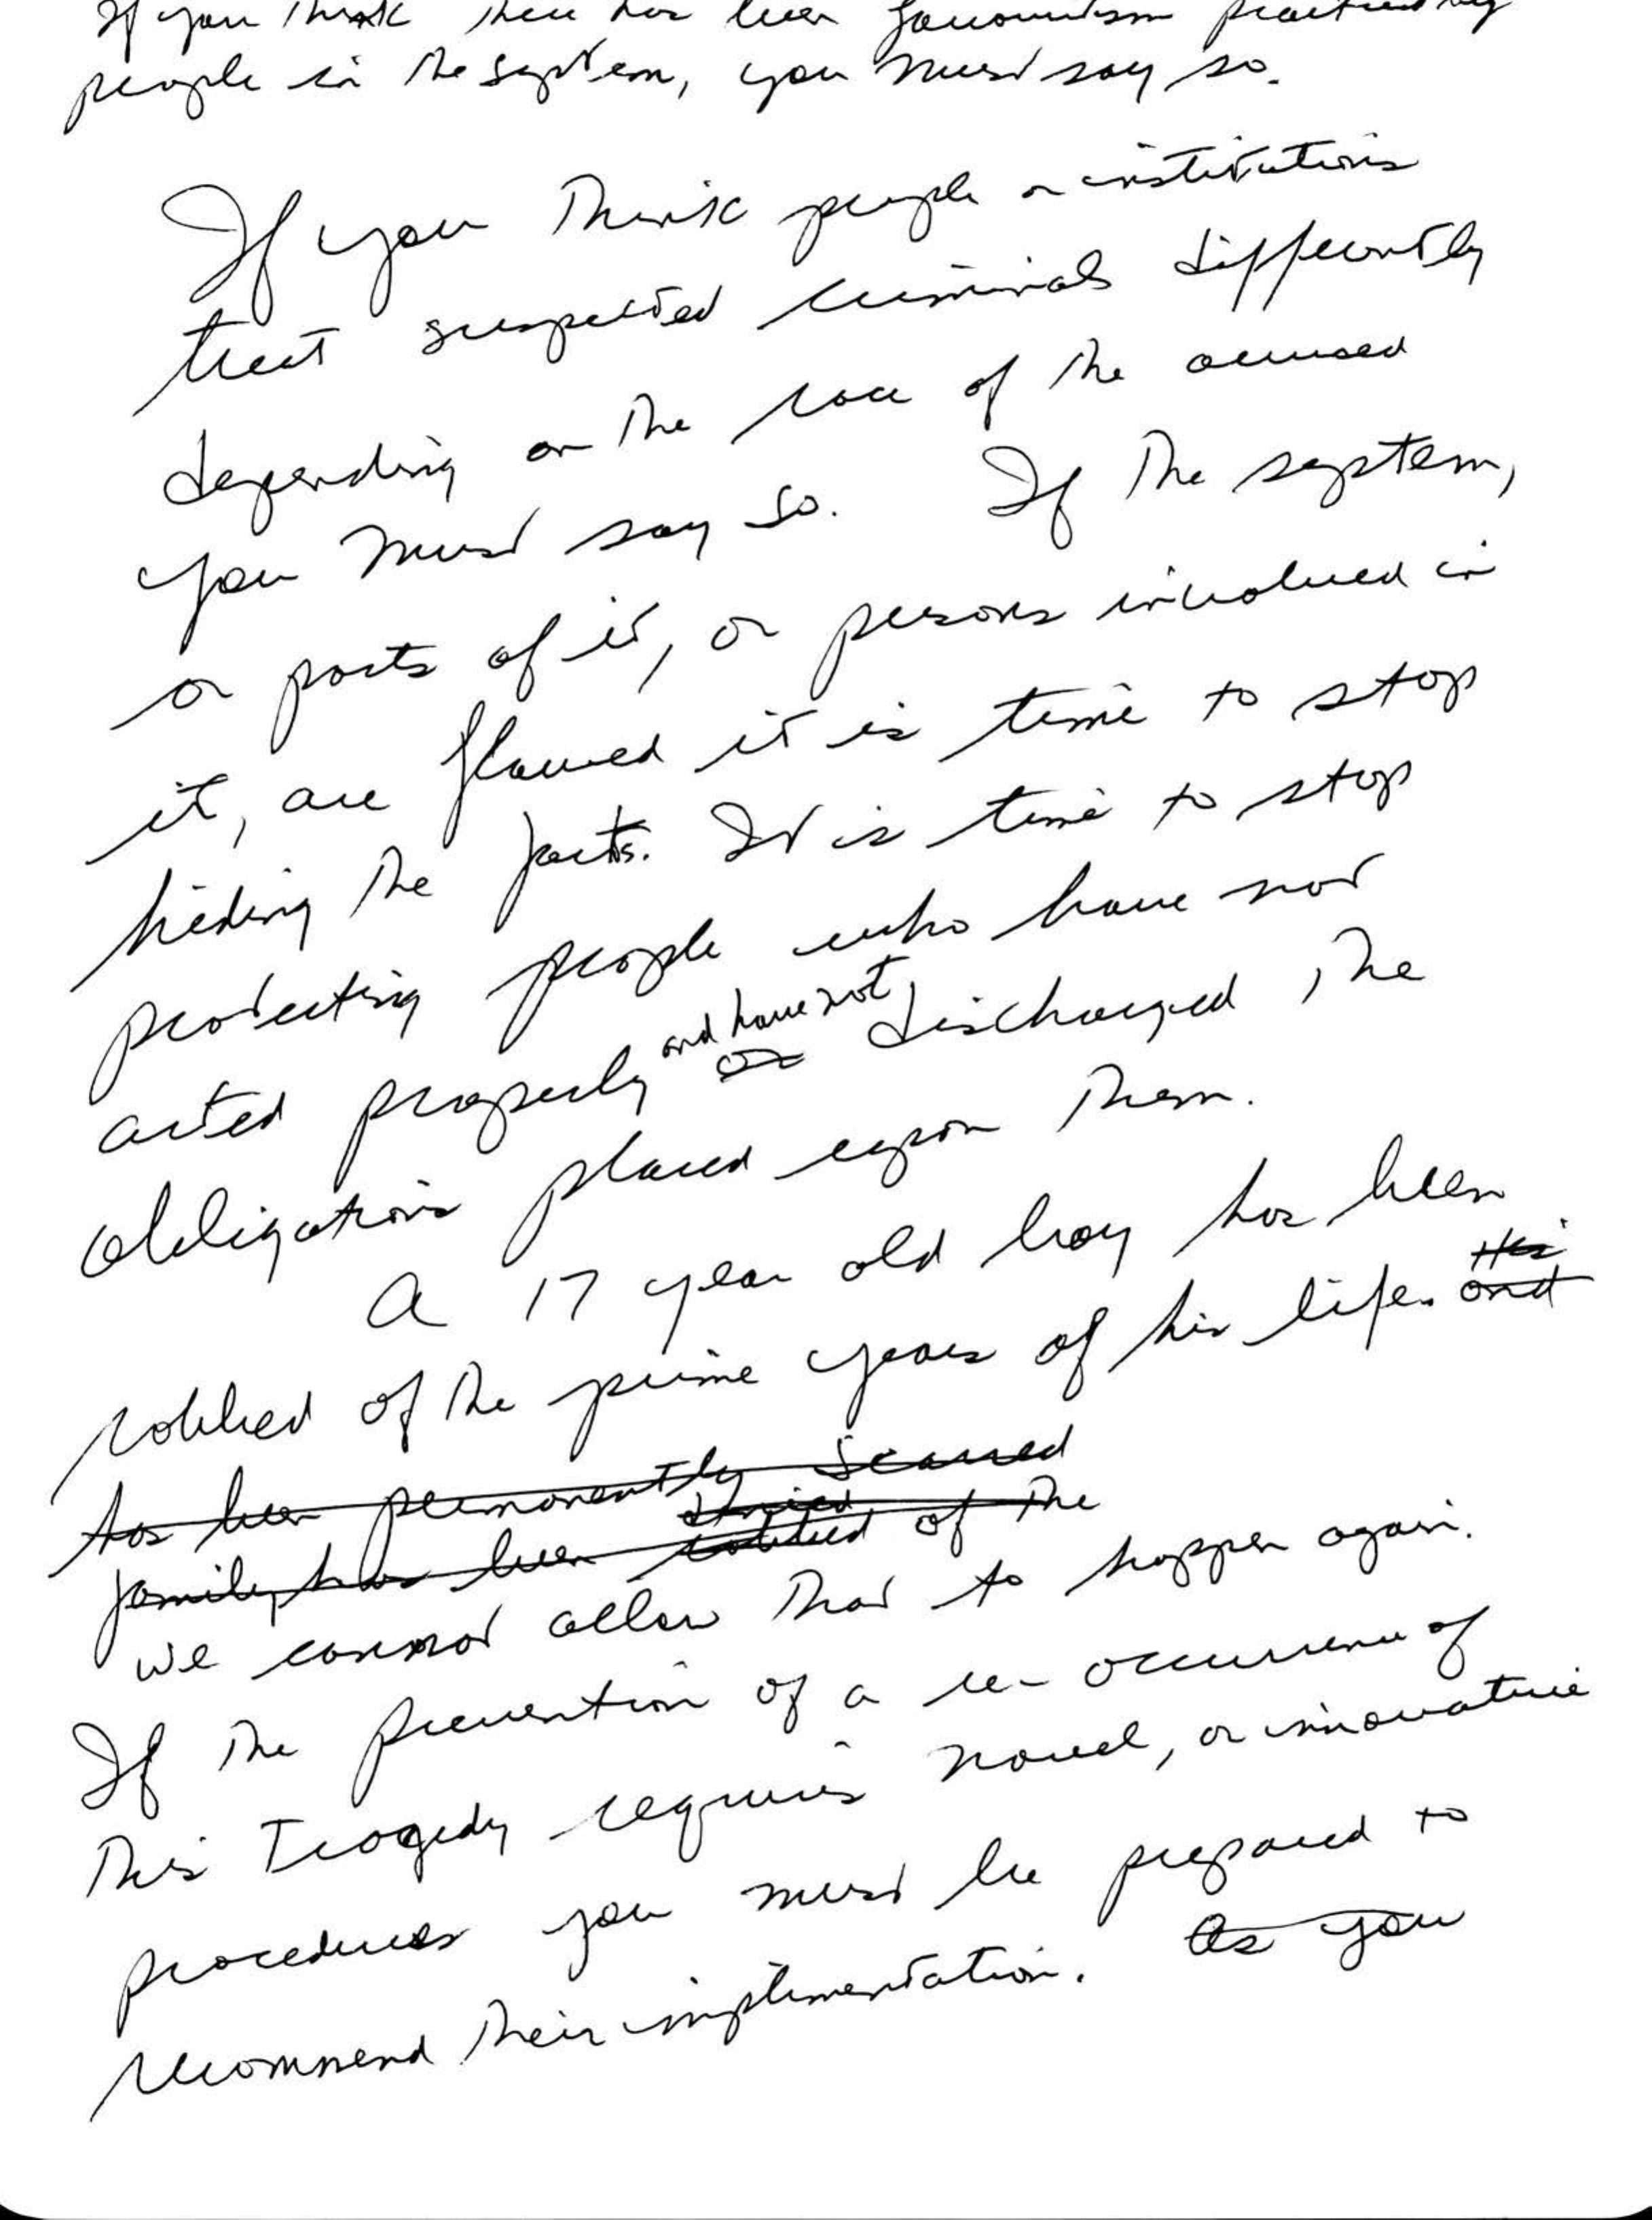 If you think there has been favouritism practised by
people in the system, you must say so.
If you think people or institutions
treat suspected criminals differently
depending on the race of the accused
you must say so. If the system,
or parts of it, or persons involved in
it, are flawed it is time to stop
hiding the facts. It is time to stop
protecting people who have not
acted properly and have not or discharged the
obligations placed upon them.
A 17 year old boy has been
robbed of the prime years of his life. His and
has been permanently scarred
family has been denied robbed of the
we cannot allow that to happen again.
If the prevention of a re-occurrence of
this Tragedy requires novel, or innovative
procedures you must be prepared to
recommend their implementation. As you